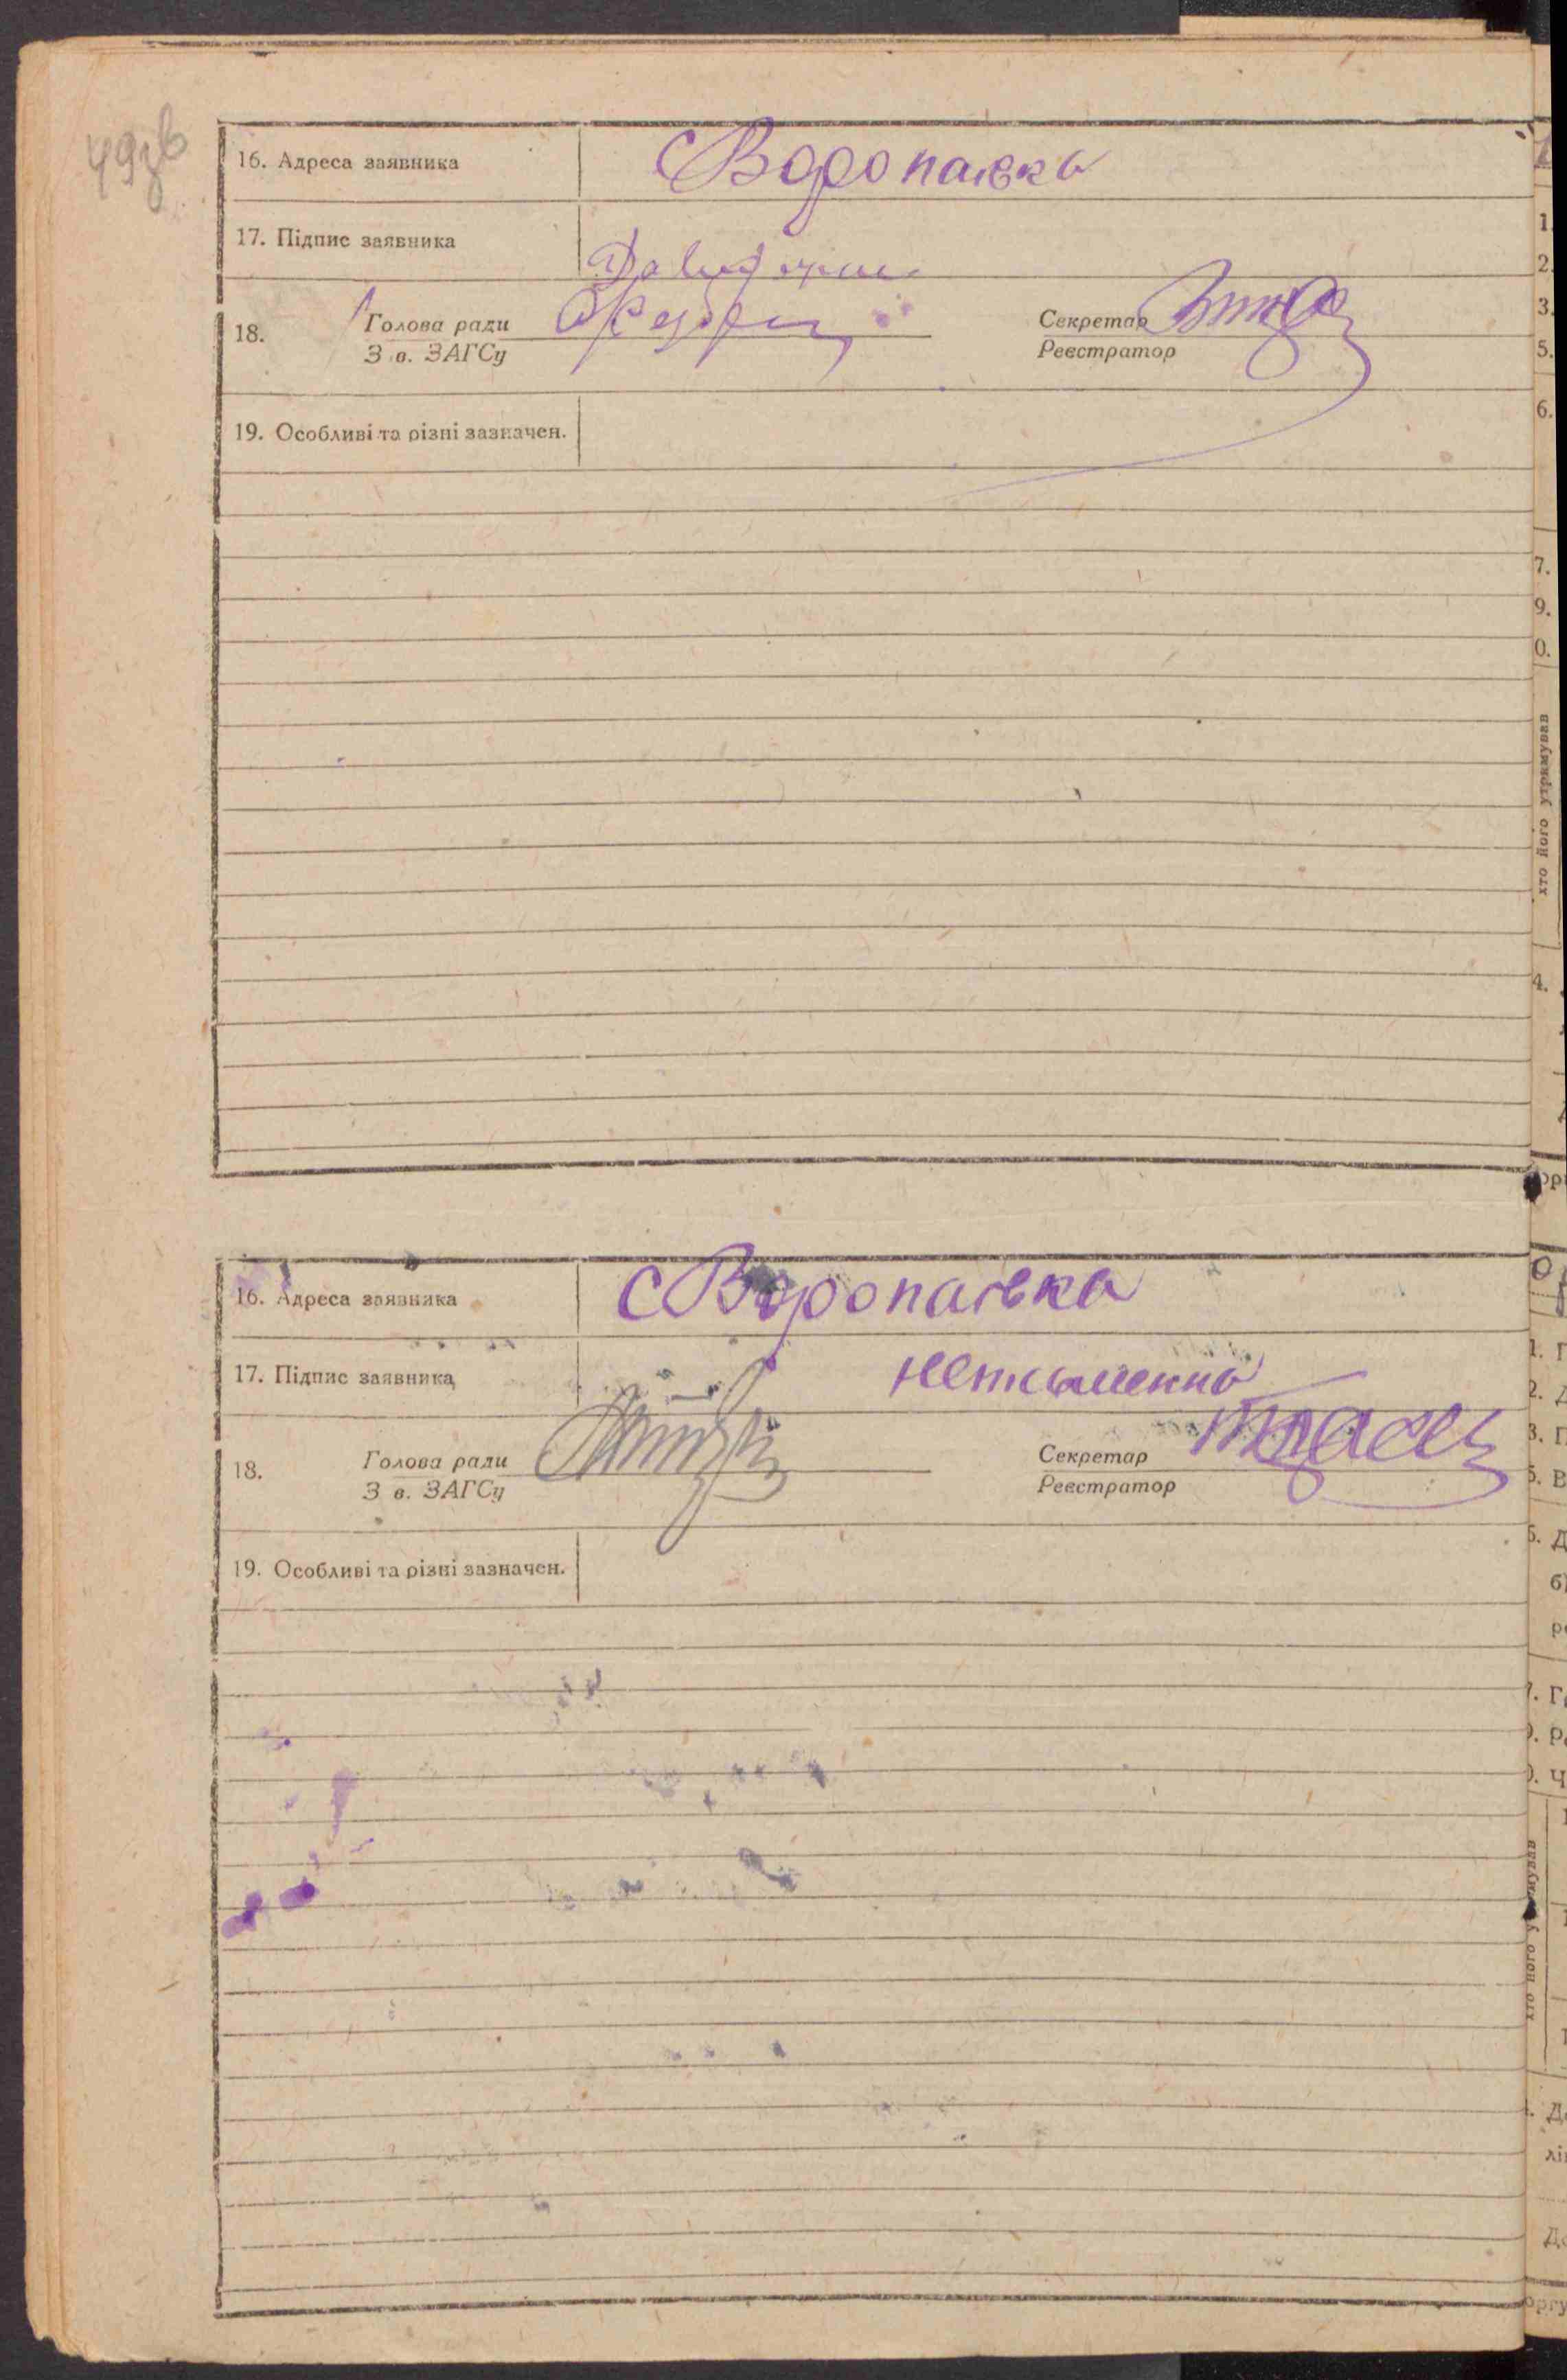 49зв
16. Адреса заявника С Воропаївка
17. Підпис заявника
18. Голова ради Секретар
З в. ЗАГСу Реєстратор
19. Особливі та різні зазначен.
хто його утримував
16. Адреса заявника С Воропаївка
17. Підпис заявника неписьменна
18. Голова ради Секретар
З в. ЗАГСу Реєстратор
19. Особливі та різні зазначен.